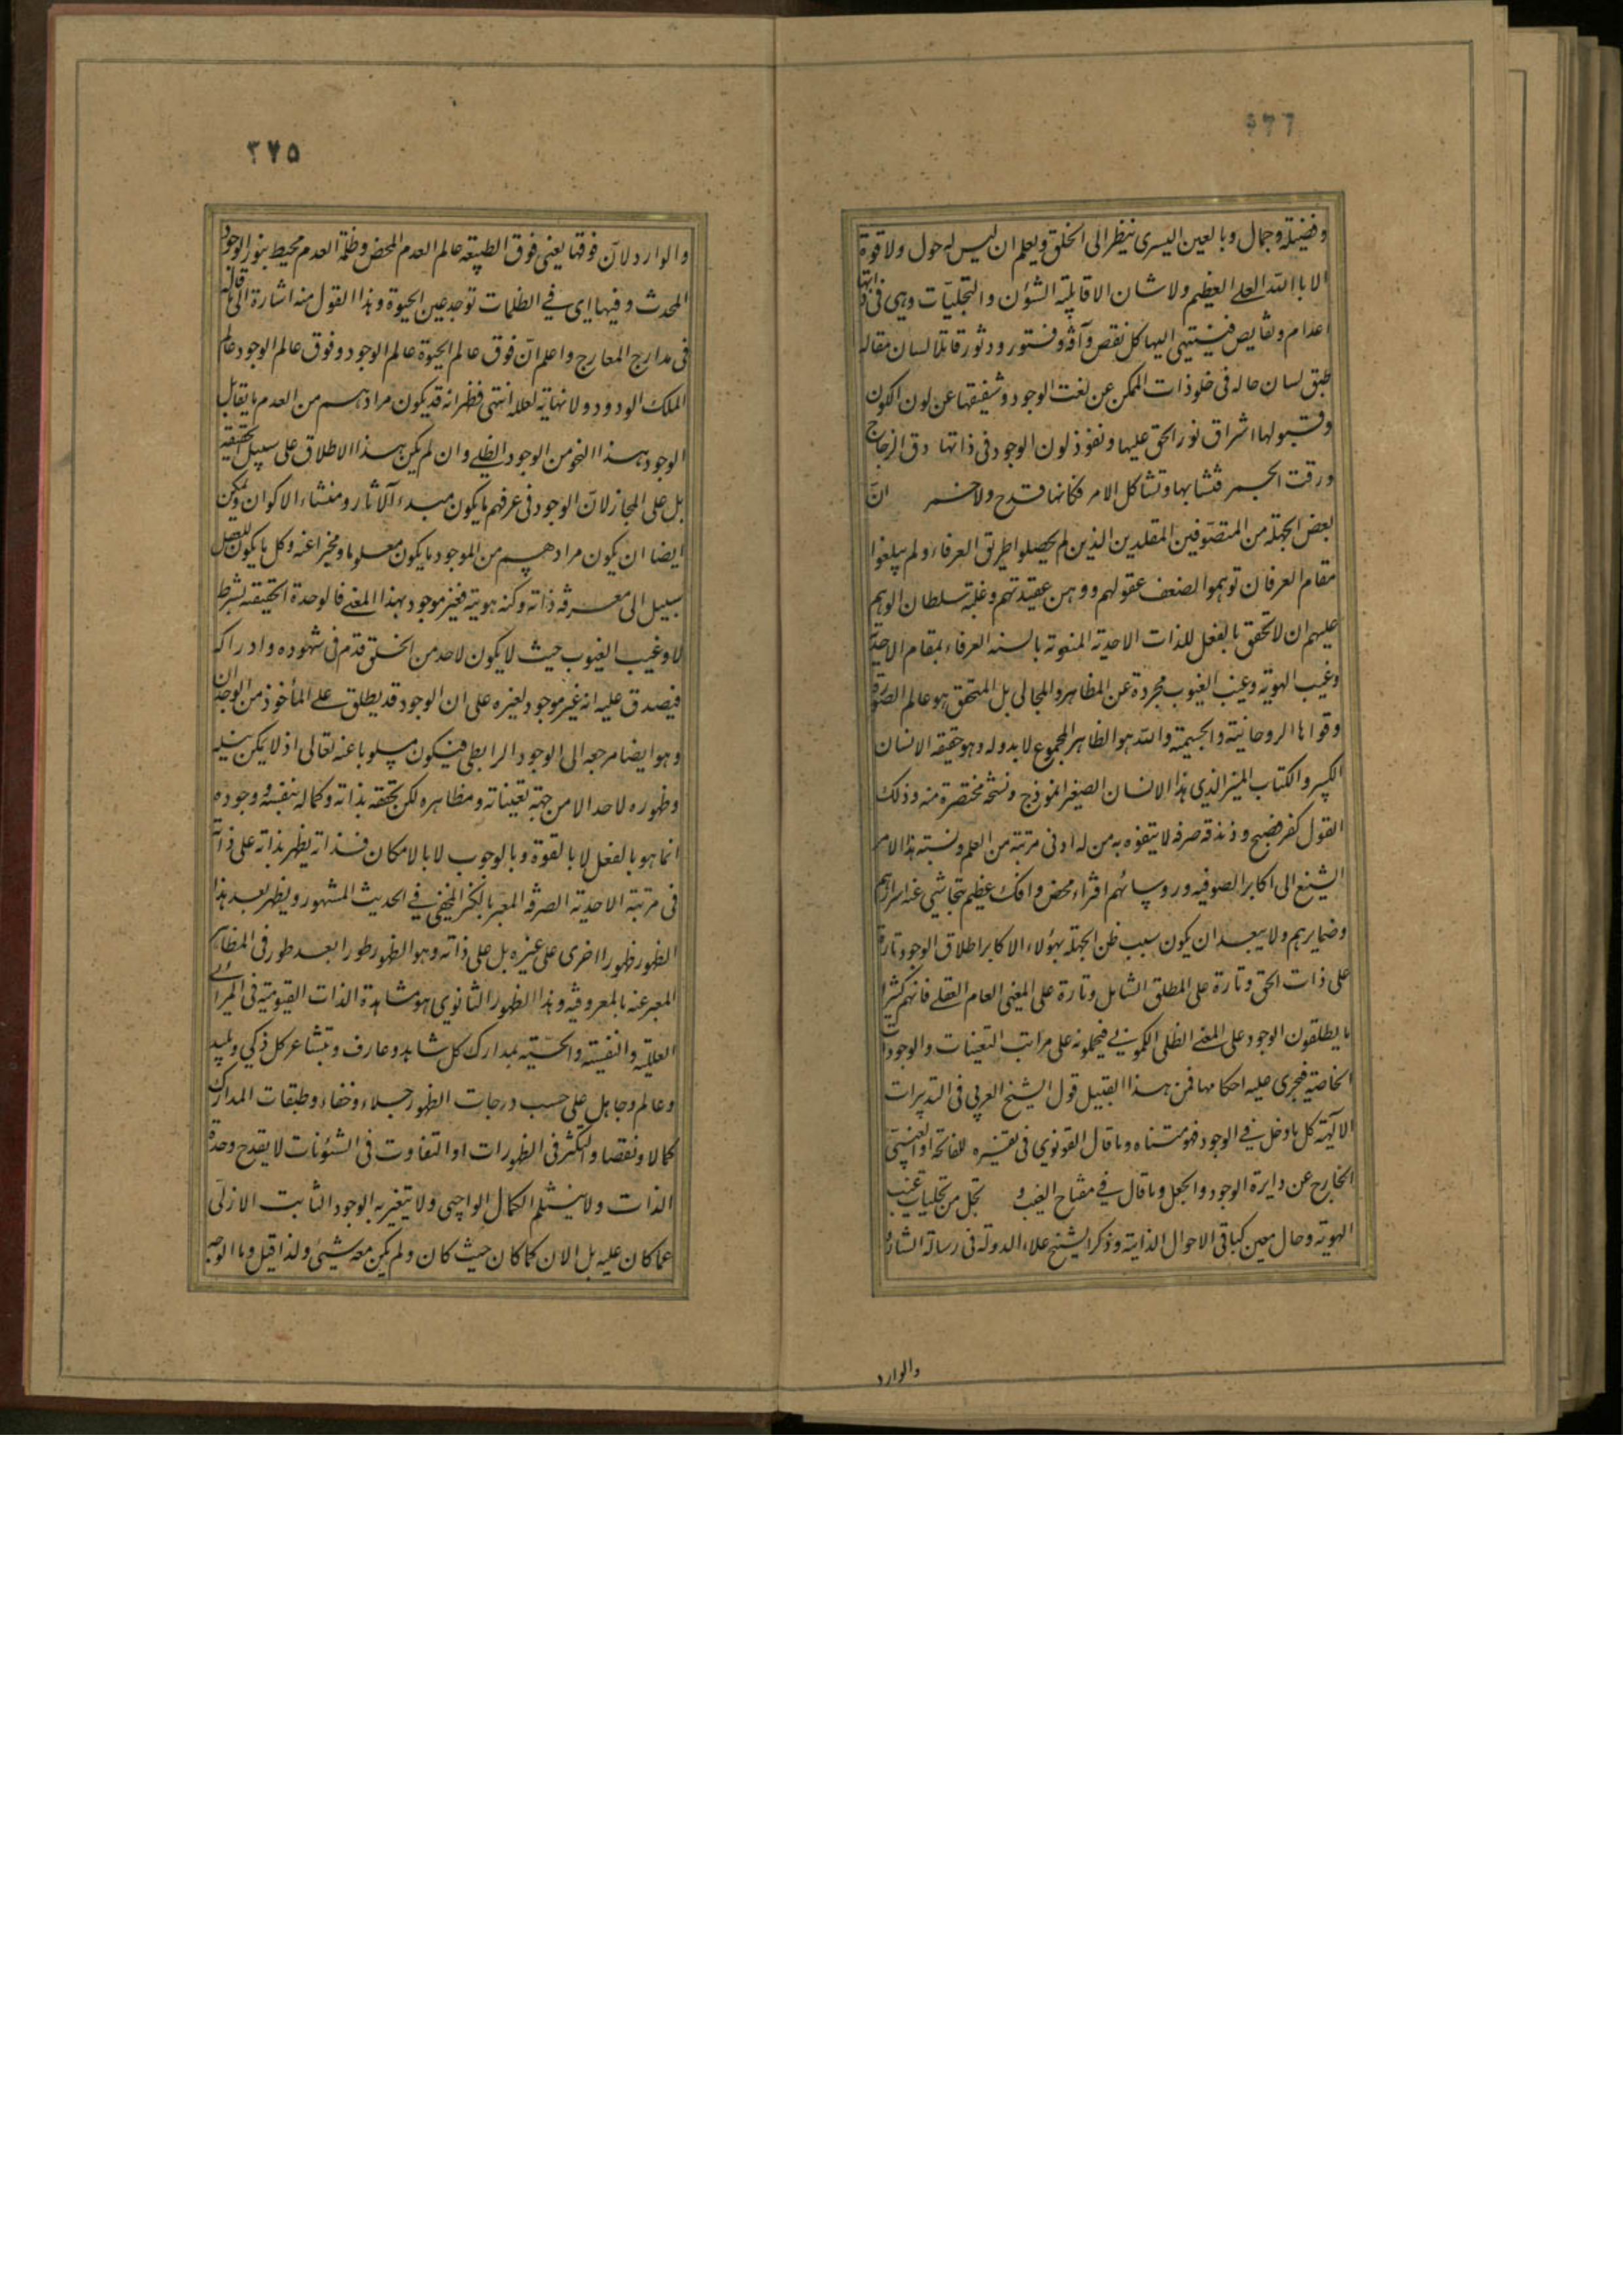 وفضيلة وجمال وبالعين اليسرى ينظر الى الخلق ويعلم ان ليس له حول ولا قوة
الا بالله العلى العظيم ولا شان الا قابلية الشؤن والتجليات وهى فى ذاتها
اعدام ونقايص فينتهى اليها كل نقص وآفة وفتور ودثور قائلا لسان مقاله
طبق لسان حاله فى خلو ذات الممكن عن نعت الوجود وشفيفها عن لون الكون
وقبولها اشراق نور الحق عليها ونفوذ لون الوجود فى ذاتها رق الزجاج
ورقت الخمر فتشابها وتشاكل الامر فكانها قدح ولا خمر ان
بعض الجهلة من المتصوفين المقلدين الذين لم يحصلوا طريق العرفاء ولم يبلغوا
مقام العرفان توهموا لضعف عقولهم ووهن عقيدتهم وغلبة سلطان الوهم
عليهم ان لا تحقق بالفعل للذات الاحدية المنعوتة بالسنه العرفاء بمقام الاحدية
وغيب الهوية وغيب الغيوب مجردة عن المظاهر والمجالى بل المتحقق هو عالم الصورة
وقواها الروحانية والجسمية والله هو الظاهر المجموع لا بدونه وهو حقيقة الانسان
الكبير والكتاب المبين الذى هذا الانسان الصغير انموذج ونسخة مختصرة منه وذلك
القول كفر فضيح وزندقة صرفه لا يتفوه به من له ادنى مرتبة من العلم ونسبة هذا الامر
الشنيع الى اكابر الصوفيه وروسائهم افتراء محض وافك عظيم يتحاشى عنه اسرارهم
وضمايرهم ولا يبعد ان يكون سبب ظن الجهلة بهؤلاء الاكابر اطلاق الوجود تارة
على ذات الحق وتارة على المطلق الشامل وتارة على المعنى العام العقلى فانهم كثيرا
ما يطلقون الوجود على المعنى الظلى الكونى فيحملونه على مراتب التعينات والوجودات
الخاصة فيجرى عليه احكامها فمن هذا القبيل قول الشيخ العربى فى التدبيرات
الالهية كل ما دخل فى الوجود فهو متناه وما قال القونوى فى تفسيره للفاتحة
الخارج عن دايرة الوجود والجعل وما قال فى مفتاح الغيب تجل من تجليات غيب
الهوية وحال معين كباقى الاحوال الذاتية وذكر الشيخ علاء الدولة فى رسالة الشارد
والوارد
٣٧٥
والوارد لان فوقها يعنى فوق الطبيعة عالم العدم المحض وظلمة العدم محيط بنور الوجود
المحدث وفيها اى فى الظلمات توجد عين الحيوة وهذا القول منه اشارة الى ما قاله
فى مدارج المعارج واعلم ان فوق عالم الحيوة عالم الوجود وفوق عالم الوجود عالم
الملك الودود ولا نهاية لعلمه انتهى فظهر انه قد يكون مرادهم من العدم ما يقابل
الوجود هذا النحو من الوجود الظلى وان لم يكن هذا الاطلاق على سبيل الحقيقة
بل على المجاز لان الوجود فى عرفهم ما يكون مبدء الآثار ومنشاء الاكوان ويمكن
ايضا ان يكون مرادهم من الموجود ما يكون معلوما ومخبرا عنه وكل ما يكون للعقل
سبيل الى معرفة ذاته وكنه هويته فغير موجود بهذا المعنى فالوحدة الحقيقة بشرط
لا وغيب الغيوب حيث لا يكون لاحد من الخلق قدم فى شهوده وادراكه
فيصدق عليه انه غير موجود لغيره على ان الوجود قد يطلق على المأخوذ من الوجدان
وهو ايضا مرجعه الى الوجود الرابطى فيكون مسلوبا عنه تعالى اذ لا يمكن نيله
وظهوره لاحد الا من جهة تعيناته ومظاهره لكن تحققه بذاته وكماله بنفسه ووجوده
انما هو بالفعل لا بالقوة وبالوجوب لا بالامكان فذاته يظهر بذاته على ذاته
فى مرتبة الاحدية الصرفة المعبر بالكنز المخفى فى الحديث المشهور ويظهر بعد هذا
الظهور ظهورا اخرى على غيره بل على ذاته وهو الظهور طورا بعد طور فى المظاهر
المعبر عنه بالمعروفية وهذا الظهور الثانوى هو مشاهدة الذات القيومية فى المرائى
العقلية والنفسية والحسية بمدارك كل شاهد وعارف وبمشاعر كل ذكى وبليد
وعالم وجاهل على حسب درجات الظهور جلاء وخفاء وطبقات المدارك
كمالا ونقصا والتكثر فى الظهورات او التفاوت فى الشئونات لا يقدح وحدة
الذات ولا ينثلم الكمال الواجبى ولا يتغير به الوجود الثابت الازلى
عما كان عليه بل الان كما كان حيث كان ولم يكن معه شيئ ولذا قيل وما الوجه